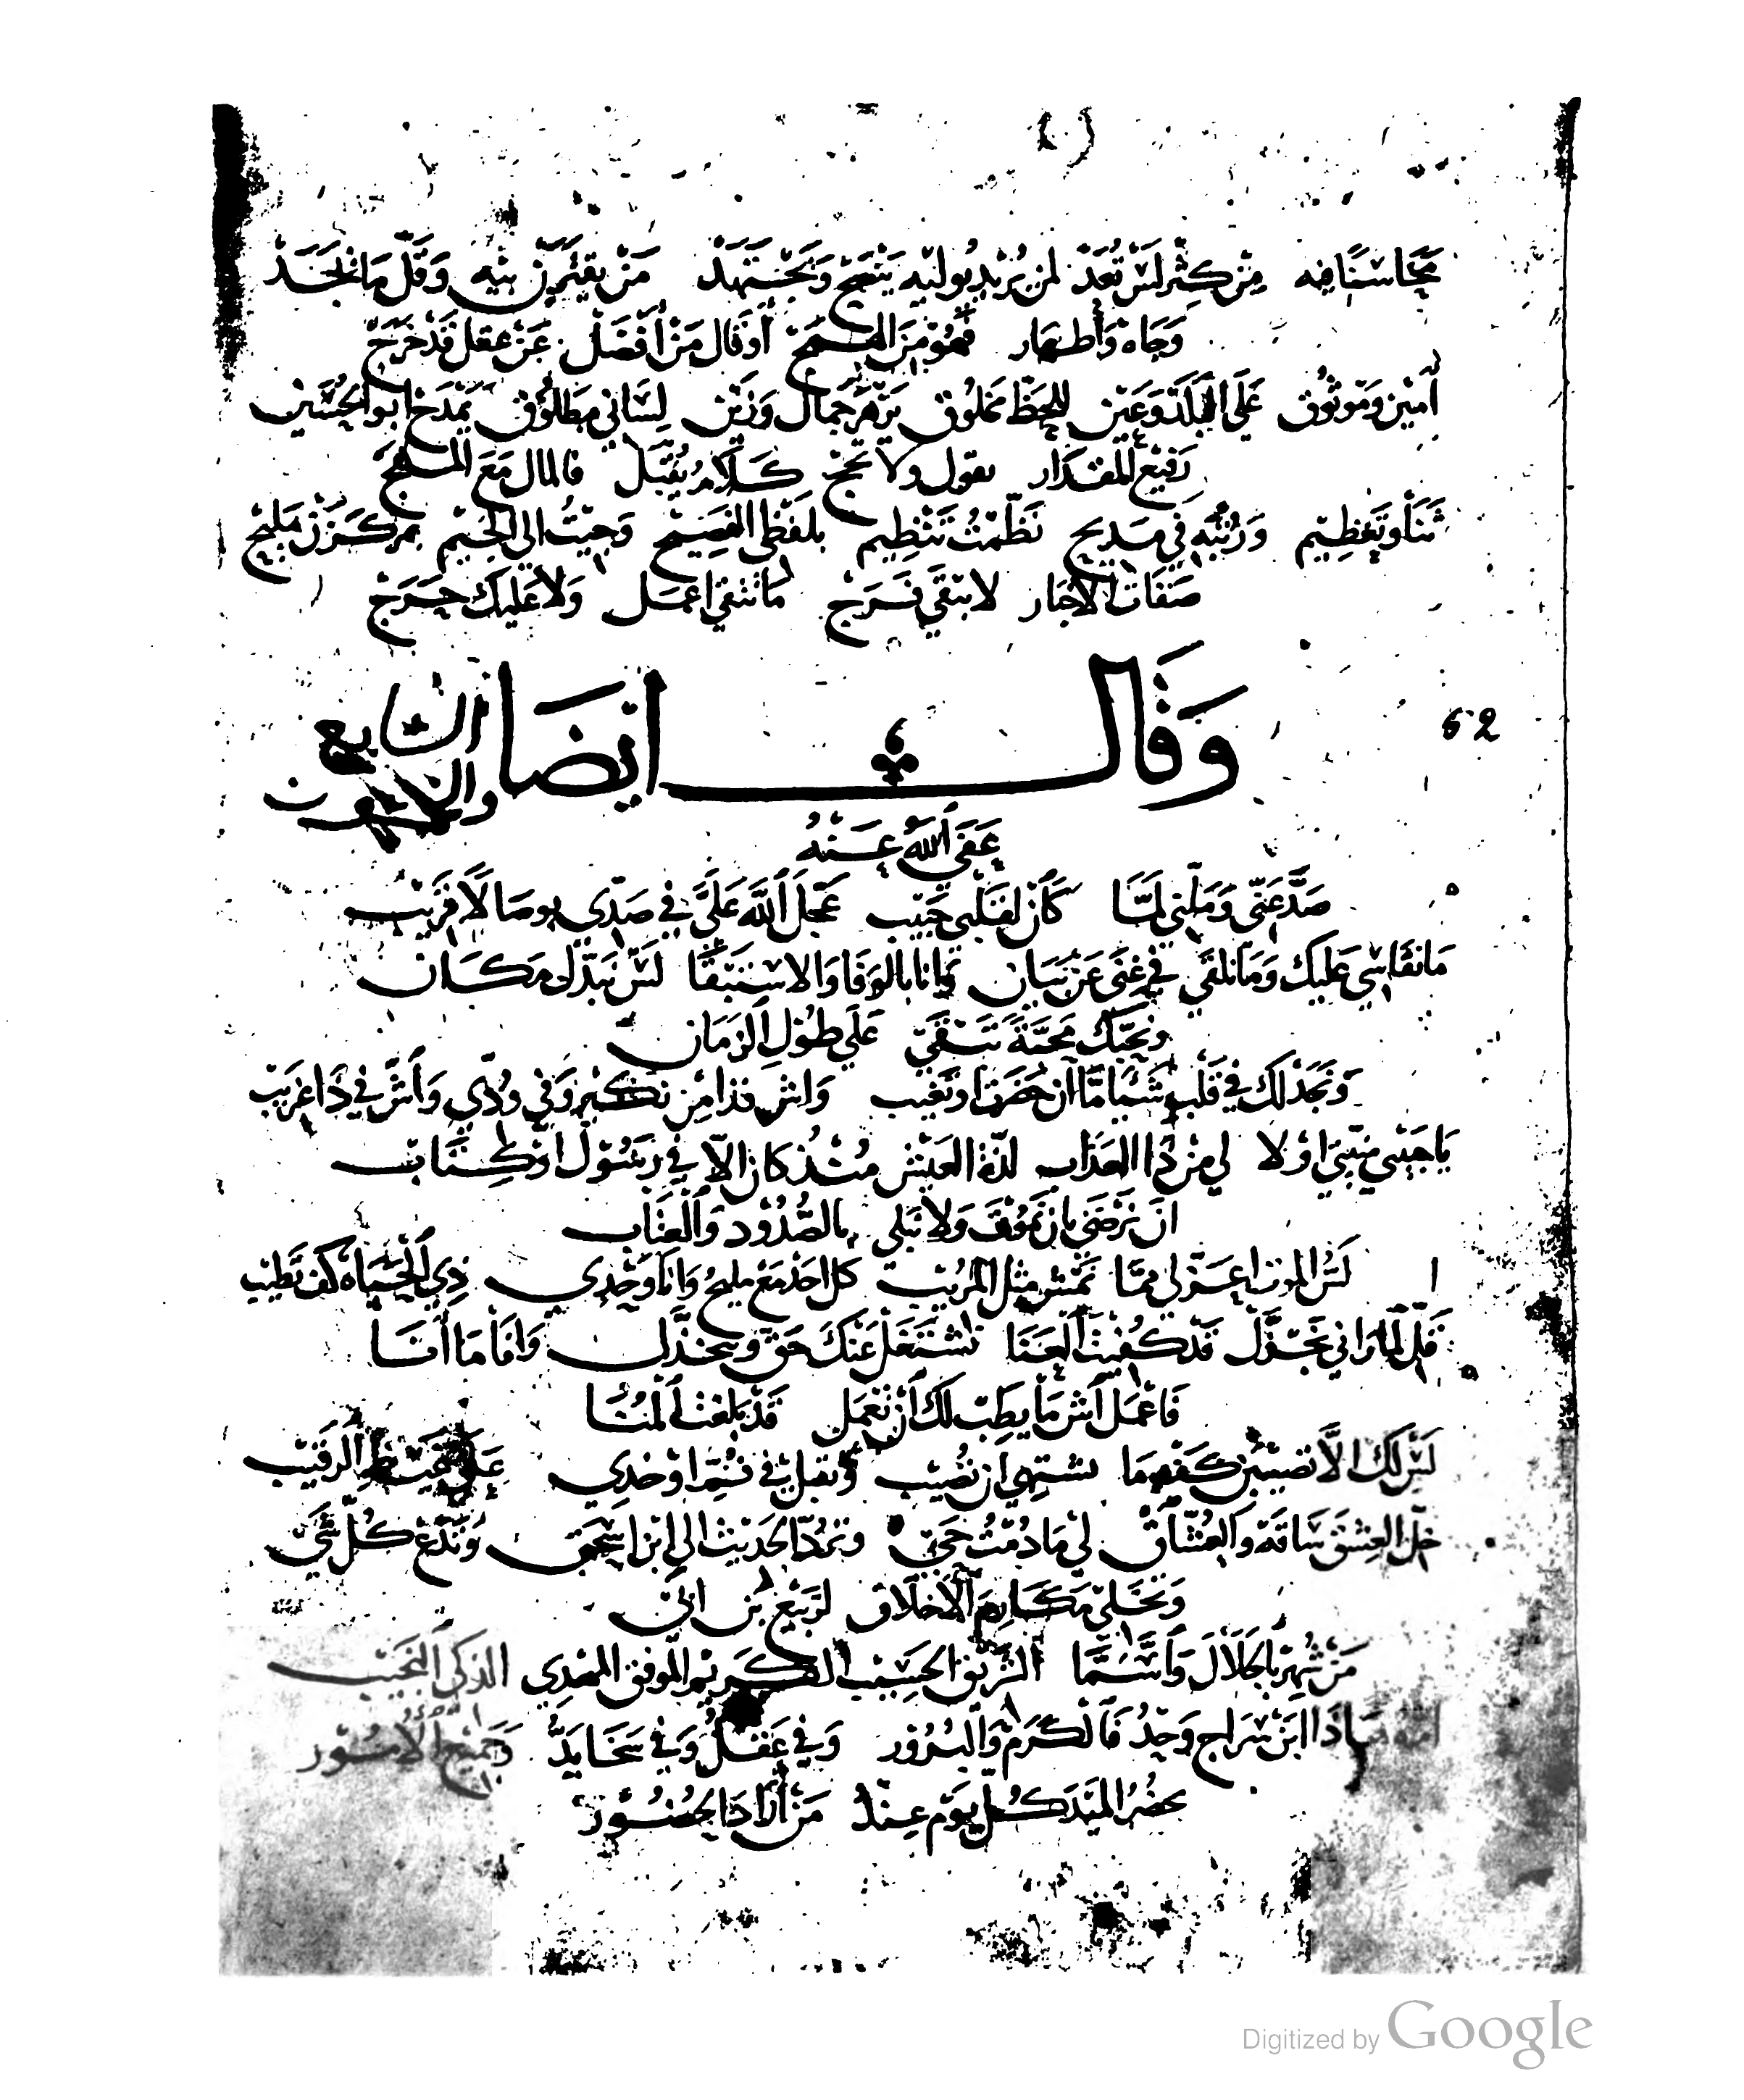 محاسنا فيه من كثر لس تعد لمن يريد بوليه ينتج ونجتهد من يقترن بيه وقل ما نجد
وجاه واطهار فهو من السمح او قال من افضل عن عقل قد خرج
أمين وموثوق على البلد وعين للحظ مخلوق يزهر جمال وزين لساني مطلوق يمدح ابو الحسين
رفيع المقدار نقول ولا نحج كلام يقبل فالمال مع المهج
ثنا وتعظيم ورتبه في مديح نظمت تنظيم بلفظ الفصيح وجيت الى الجيم بمركزن مليح
صفات الاجار لا تبقى فرج ما تتقي اعمل ولا عليك حرج
52
وقال ايضا السابع
والاربعون
عفى الله عنه
صد عني وملني لما كان لقلبي حبيب عجل الله على في صدي بوصالا قريب
ما نقاسي عليك وما نلقى في غنى عن بيان وانا بالوفا والاستبقا لس نبدل مكان
ونحبك محبة تبقى على طول الزمان
ونجد لك في قلب شيا ما ان حضرت او تغيب واش فذا من نكير وفي ودي واش في ذا غريب
يا حبيبي منيتي اولا لي من ذا العذاب لذة العيش مذ كان الا في رسول او كتاب
ان نرضى بان نموت ولا نبلى بالصدود والعتاب
لس الموت اعز لي مما نمش مثل المريب كل احد مع مليح وانا وحدي ذي الحياه كف تطيب
قل لمارا ني نجول قد كفيت العنا نشتغل عنك حق وسخذل وانا ما انا
فاعمل اش ما يطيب لك ان تعمل قد بلغت المنا
لس لك الا نصيبين كفهما نشتهي ان نصيب ونقبل في فم اوخدي على غيظ الرقيب
خل العشق ساقة والعشاق لي ما دمت حي ونرد الحديث الى ابن اسحق وندع كل شي
ونحلى مكارم الاخلاق لربيع بن ابي
من شهر بالجلال واتسما الشريف الحسيب الكريم الموفق المهدي الذكي النجيب
ابن سراج وحد فالكرم والبرور وفي عقل وفي سخا يد وجميع الامور
بحضر الميد كل يوم عند من اراد الحضور
Digitized by Google